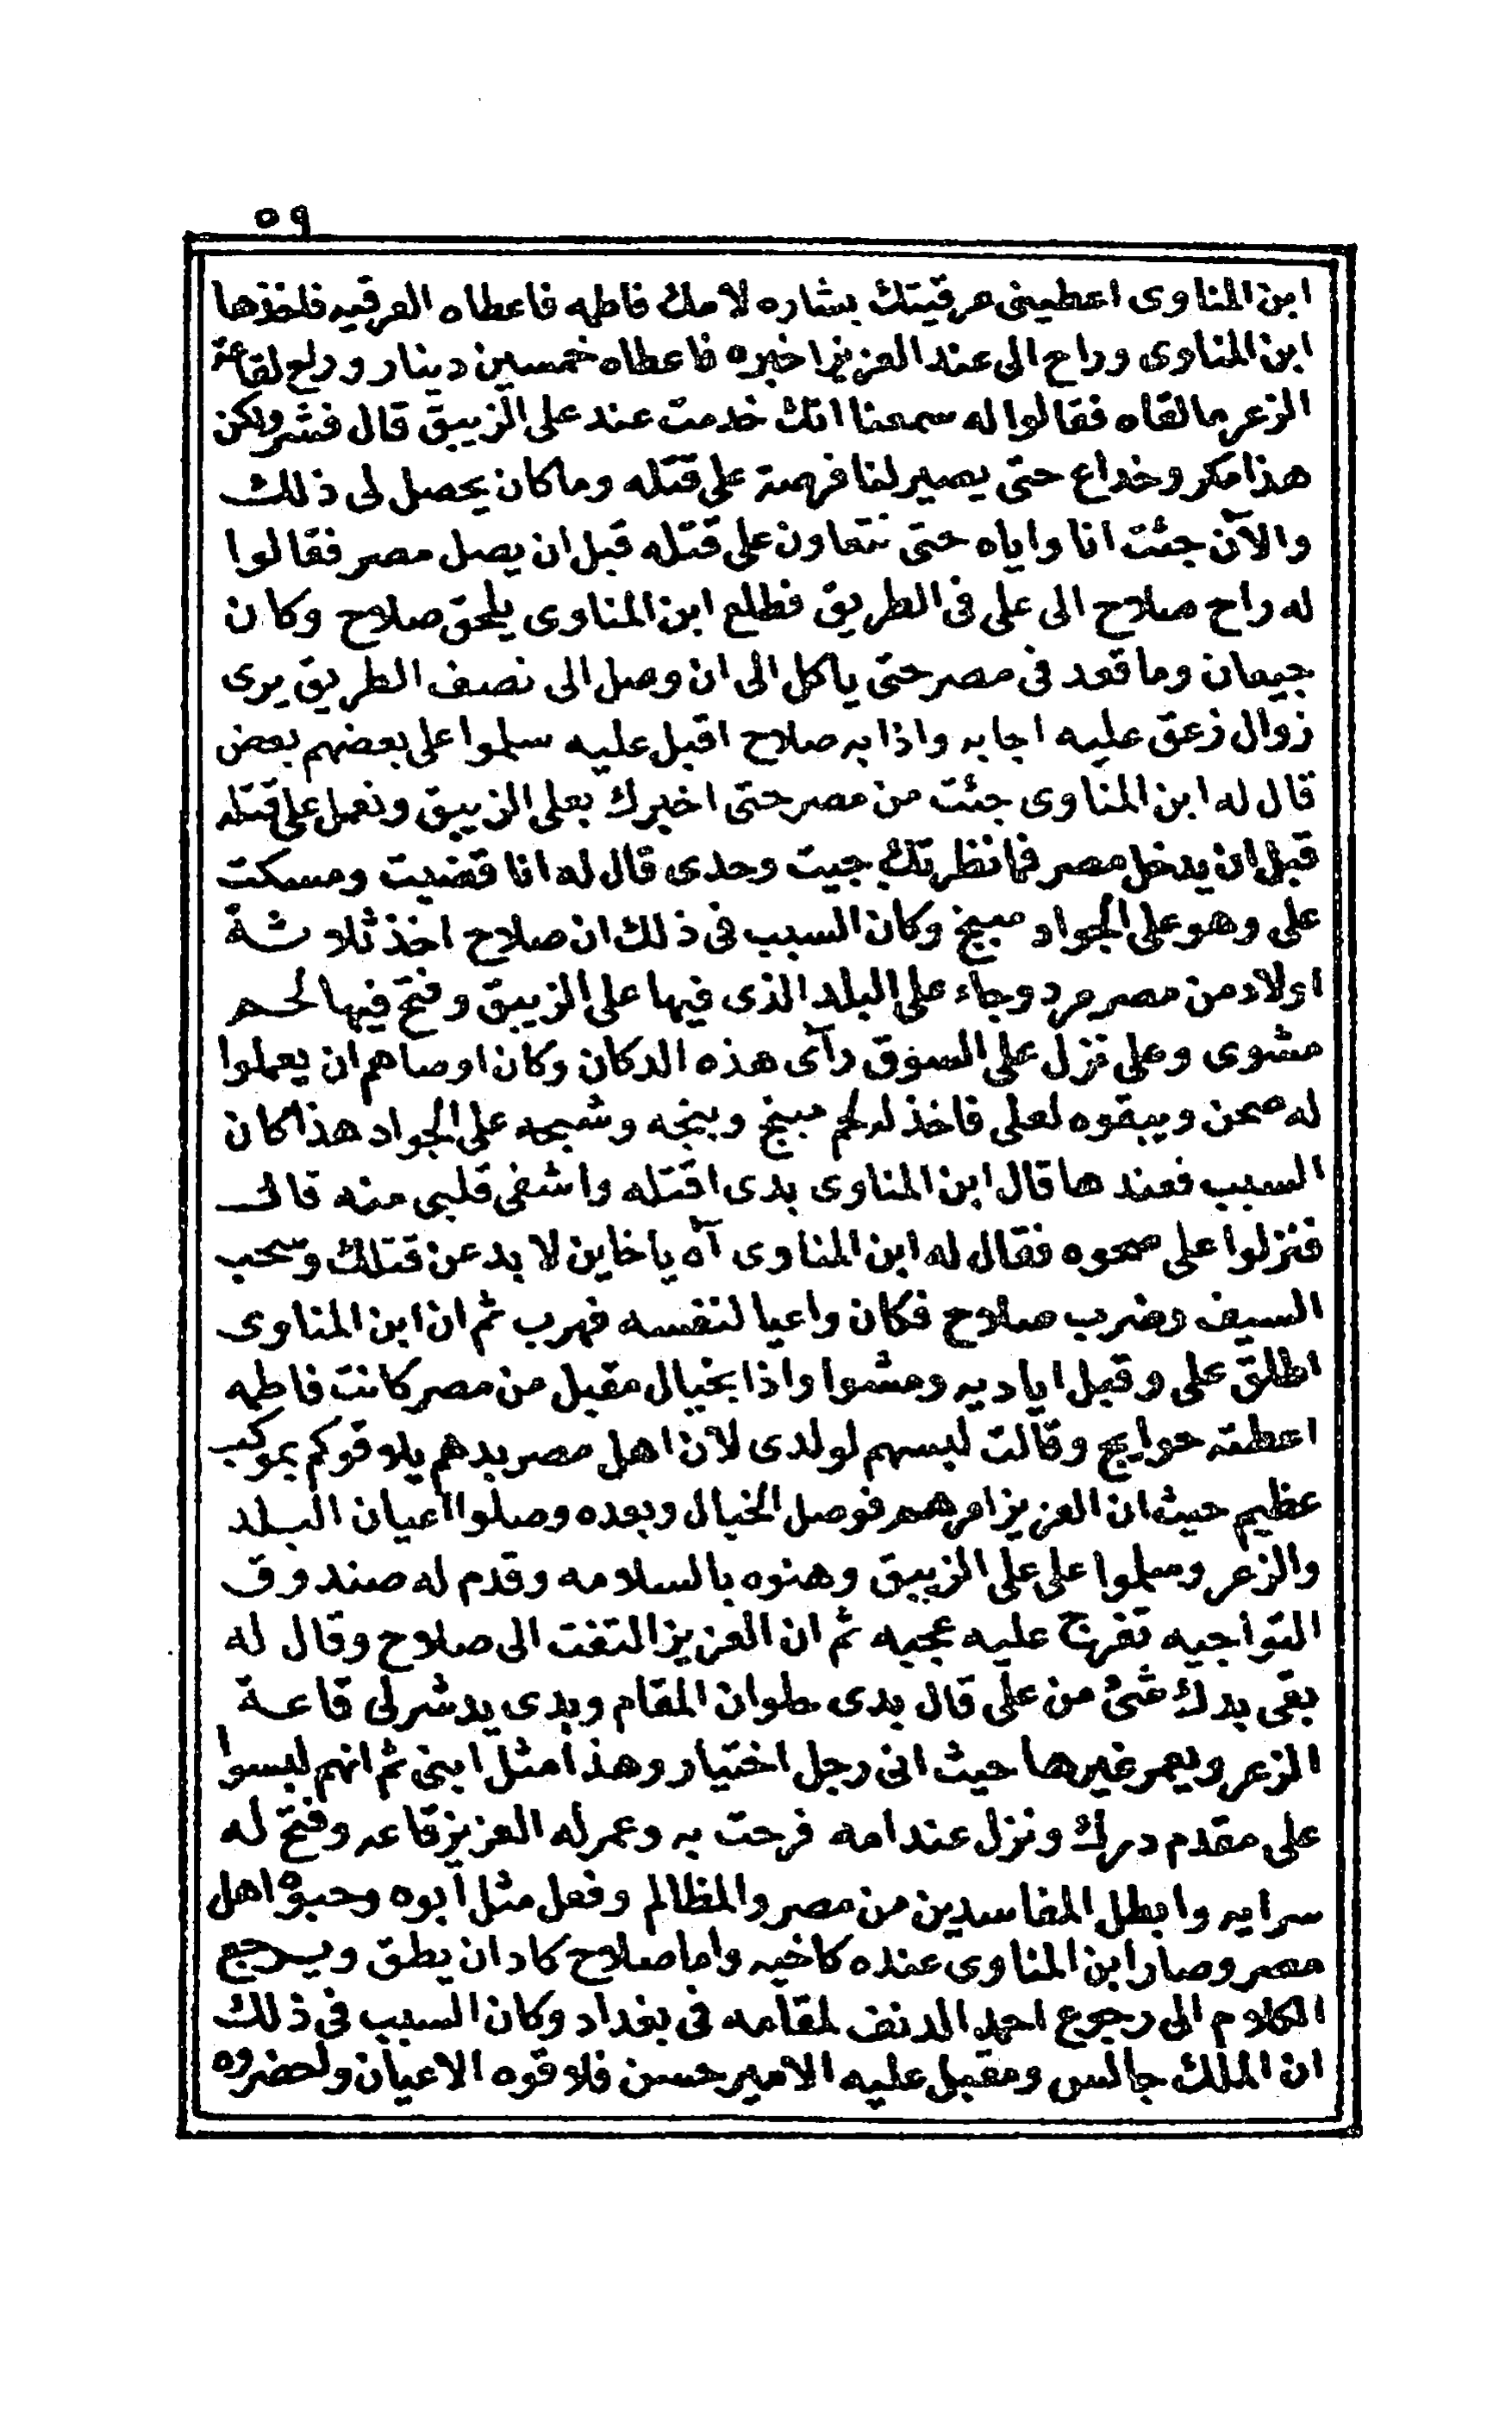 ٥٩
ابن المناوى اعطينى عرقيتك بشاره لامك فاطمه فاعطاه العرقيه فاخذها
ابن المناوى وراح الى عند العزيز اخبره فاعطاه خمسين دينار وراح لقاعة
الزعر ما لقاه فقالوا له سمعنا انك خدمت عند على الزيبق قال فشر ولكن
هذا مكر وخداع حتى يصير لنا فرصة على قتله وما كان يحصل لى ذلك
والآن جئت انا واياه حتى نتعاون على قتله قبل ان يصل مصر فقالوا
له راح صلاح الى على فى الطريق فطلع ابن المناوى يلحق صلاح وكان
جيعان وما قعد فى مصر حتى ياكل الى ان وصل الى نصف الطريق يرى
زوال زعق عليه اجابه واذا به صلاح اقبل عليه سلموا على بعضهم بعض
قال له ابن المناوى جئت من مصر حتى اخبرك بعلى الزيبق ونعمل على قتله
قبل ان يدخل مصر فما نظرتك جيت وحدى قال له انا قضيت ومسكت
على وهو على الجواد مبنج وكان السبب فى ذلك ان صلاح اخذ ثلاثة
اولاد من مصر مرد وجاء على البلد الذى فيها على الزيبق وفتح فيها لحم
مشوى وعلى نزل على السوق رآى هذه الدكان وكان اوصاهم ان يعملوا
له صحن ويبقوه لعلى فاخذ له لحم مبنج وبنجه وشبحه على الجواد هذا كان
السبب فعندها قال ابن المناوى بدى اقتله واشفى قلبى منه قال
فنزلوا على صحوه فقال له ابن المناوى آه يا خاين لا بد عن قتلك وسحب
السيف وضرب صلاح فكان واعيا لنفسه فهرب ثم ان ابن المناوى
اطلق على وقبل اياديه ومشوا واذا بخيال مقبل من مصر كانت فاطمه
اعطته حوايج وقالت لبسهم لولدى لان اهل مصر بدهم يلاقوكم بموكب
عظيم حيث ان العزيز امرهم فوصل الخيال وبعده وصلوا اعيان البلد
والزعر وسلموا على على الزيبق وهنوه بالسلامه وقدم له صندوق
التواجيه تفرج عليه عجبه ثم ان العزيز التفت الى صلاح وقال له
بقى بدك شئ من على قال بدى طوان المقام وبدى يدشر لى قاعة
الزعر ويعمر غيرها حيث انى رجل اختيار وهذا مثل ابنى ثم انهم لبسوا
على مقدم درك ونزل عند امه فرحت به وعمر له العزيز قاعه وفتح له
سرايه وابطل المفاسدين من مصر والمظالم وفعل مثل ابوه وحبوه اهل
مصر وصار ابن المناوى عنده كاخيه واما صلاح كاد ان يطق ويرجع
الكلام الى رجوع احمد الدنف لمقامه فى بغداد وكان السبب فى ذلك
ان الملك جالس ومقبل عليه الامير حسن فلاقوه الاعيان واحضروه